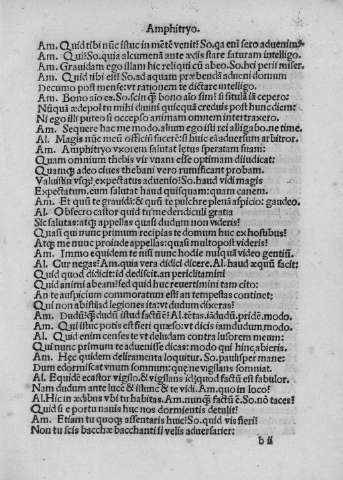 Amphitryo.
Am. Quid tibi nūc istuc in mētē venit? So. qa enī sero aduenim⁹
Am. Qui? So. quia alcumenā ante ædis stare saturam intelligo.
Am. Grauidam ego illam hic reliqui cū abeo. So. hei perii miser.
Am. Quid tibi est? So. ad aquam præbendā adueni domum
Decumo post mense: vt rationem te dictare intelligo.
Am. Bono aīo es. So. scin q̄ bono aīo sim? si situlā iā cepero:
Nūquā ædepol tu mihi diuini quicquā creduis post hunc diem:
Ni ego illi puteo si occepso animam omnem intertraxero.
Am. Sequere hac me modo. alium ego isti rei alligabo. ne time.
Al. Magis nūc meū officiū facere: si huic eā aduersum arbitror.
Am. Amphitryo vxorem salutat lætus speratam suam:
Quam omnium thebis vir vnam esse optimam diiudicat:
Quamq; adeo ciues thebani vero rumificant probam.
Valuistin vsq;? expectatus aduenio? So. haud vidi magis
Expectatum. eum salutat haud quisquam: quam canem.
Am. Et quū te grauidā: & quū te pulchre plenā aspicio: gaudeo.
Al. Obsecro ecastor quid tu me deridiculi gratia
Sic salutas: atq; appellas quasi dudum non videris?
Quasi qui nunc primum recipias te domum huc ex hostibus?
Atq; me nunc proinde appellas: quasi multo post videris?
Am. Immo equidem te nisi nunc hodie nusquā video gentiū.
Al. Cur negas? Am. quia vera didici dicere. Al. haud æquū facit:
Quid quod didicit: id dediscit. an periclitamini
Quid animi abeam? sed quid huc reuertimini tam cito:
An te auspicium commoratum est: an tempestas continet;
Qui non abiisti ad legiones ita: vt dudum dixeras?
Am. Dudū: q̄ dudū istud factū ē? Al. tētas. iādudū. pridē. modo.
Am. Qui istuc potis est fieri quæso: vt dicis iamdudum, modo:
Al. Quid enim censes te vt deludam contra lusorem meum:
Qui nunc primum te aduenisse dicas: modo qui hinc abieris.
Am. Hęc quidem deliramenta loquitur. So. paulisper mane:
Dum edormiscat vnum somnum: quæ ne vigilans somniat.
Al. Equidē ecastor vigilo. & vigilans id: quod factū est fabulor.
Nam dudum ante lucē & istunc & te vidi. Am. quo in loco?
Al. Hic in ædibus vbi tu habitas. Am. nunq̄ factū ē. So. nō taces?
Quid si e portu nauis huc nos dormientis detulit?
Am. Etiam tu quoq; assentaris huic? So. quid vis fieri?
Non tu scis bacchæ bacchanti si velis aduersarier:
b ii